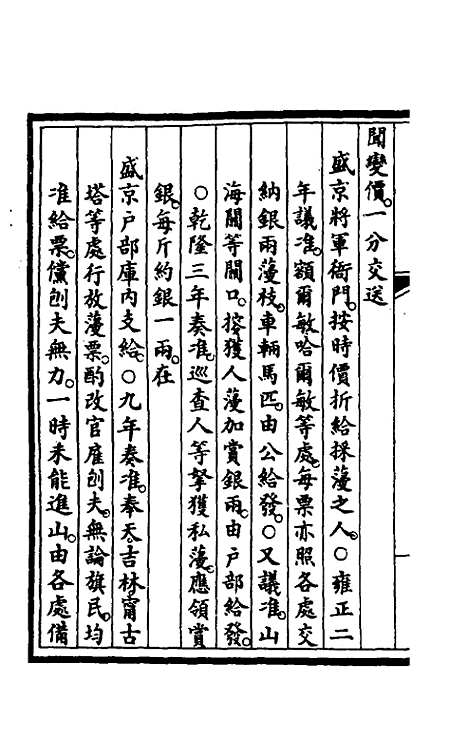 聞變價。一分交送
盛京將軍衙門。按時價折給採蓡之人。○雍正二
年議准。額爾敏哈爾敏等處。每票亦照各處交
納銀兩蓡枝。車輛馬匹。由公給發。○又議准。山
海關等關口。搜獲人蓡加賞銀兩。由戶部給發。
○乾隆三年奏准。巡查人等拏獲私蓡。應領賞
銀。每斤約銀一兩。在
盛京戶部庫內支給。○九年奏准。奉天。吉林。甯古
塔等處行放蓡票。酌改官雇刨夫。無論旗民。均
准給票。儻刨夫無力。一時未能進山。由各處備